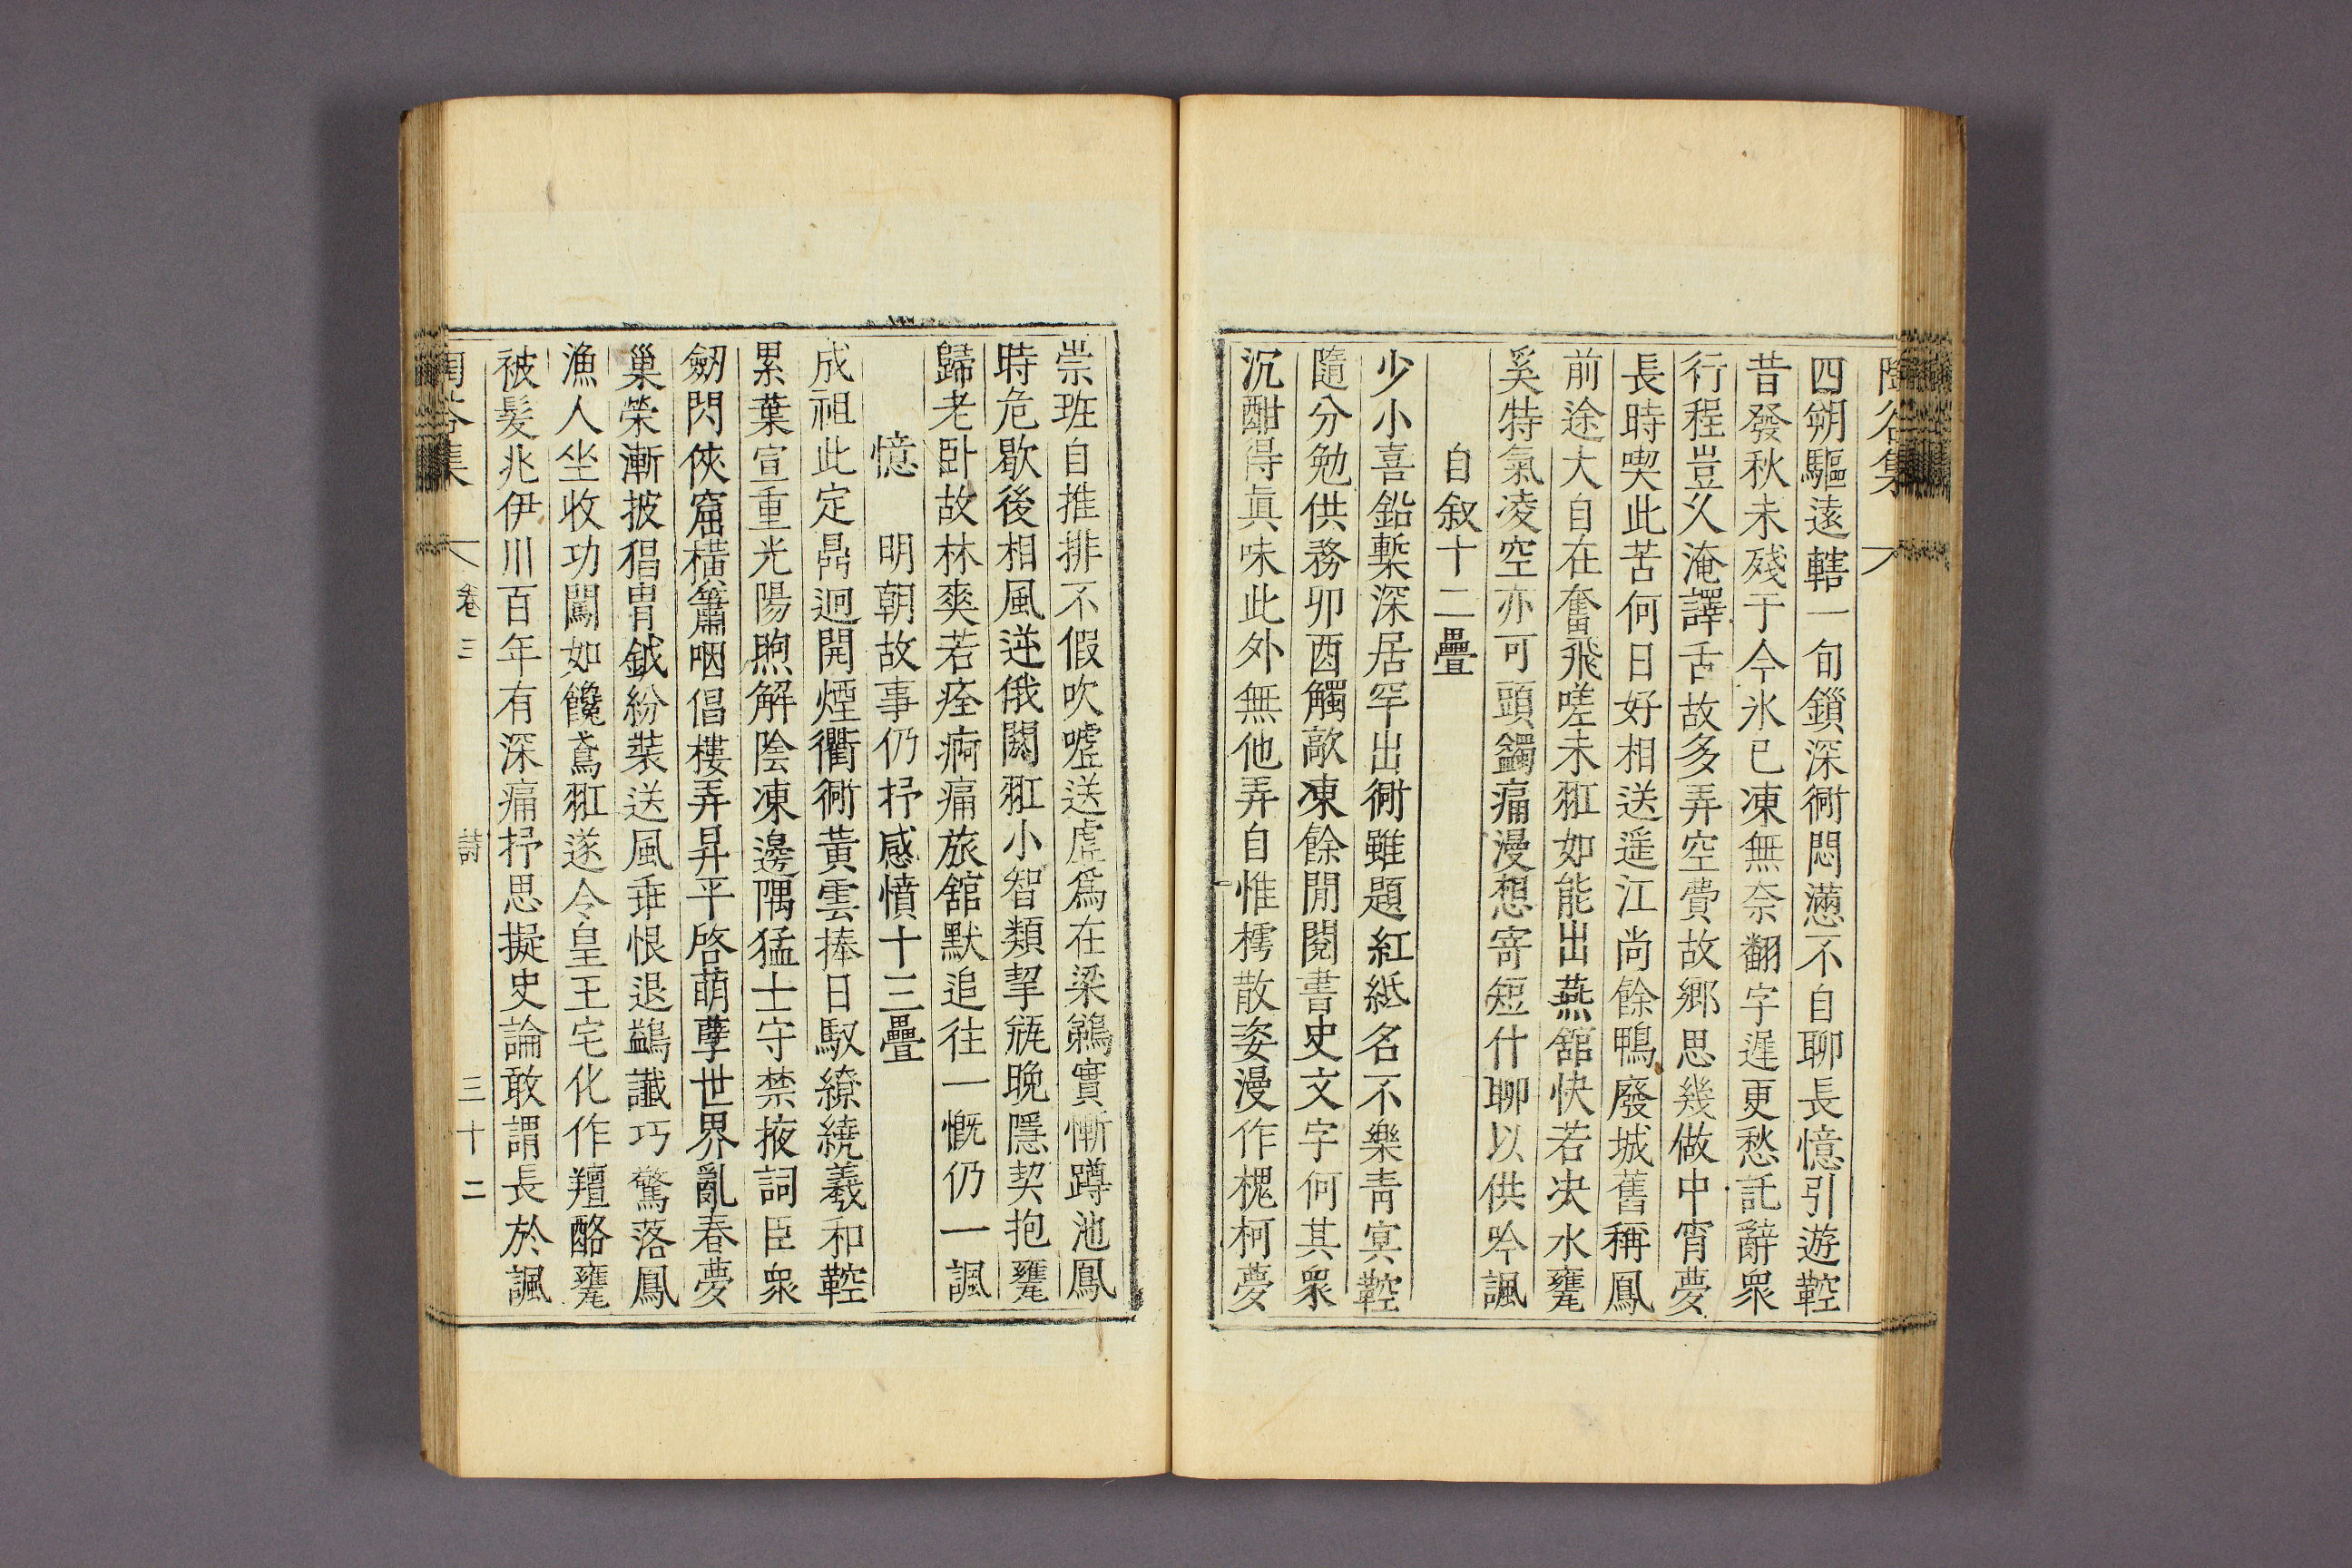 陶谷集
四朔驅遠轄一旬鎻深衕悶懣不自聊長憶引遊鞚
昔發秋未殘于今氷已凍無奈翻字遅更愁託辭衆
行程豈久淹譯舌故多弄空費故郷思幾做中宵夢
長時喫此苦何日好相送遥江尚餘鴨廢城舊稱鳳
前途大自在奮飛嗟未羾如能出燕舘快若决水甕
奚特氣凌空亦可頭蠲痛漫想寄短什聊以供吟諷
自叙十二疊
少小喜鉛槧深居罕出衕雖題紅紙名不樂青㝠鞚
隨分勉供務卯酉觸敵凍餘閒閱書史文字何其衆
沉酣得眞味此外無他弄自惟樗散姿漫作槐柯夢
崇班自推排不假吹噓送虛爲在梁鵜實慚蹲池鳳
時危歇後相風逆俄闕羾小智類挈瓶晚隱契抱甕
歸老卧故林爽若痊痾痛旅舘默追往一慨仍一諷
憶 明朝故事仍抒感憤十三疊
成祖此定鼎迥開煙衢衕黃雲捧日馭繚繞羲和鞚
累葉宣重光陽煦解陰凍邊隅猛士守禁掖詞臣衆
劒閃俠窟橫簫咽倡樓弄昇平啓萌孽世界亂春夢
巢榮漸披猖胄鉞紛裝送風乖恨退鷁讖巧驚落鳳
漁人坐收功闖如饞鳶羾遂令皇王宅化作羶酪甕
被髮兆伊川百年有深痛抒思擬史論敢謂長於諷
陶谷集 卷三 詩 三十二